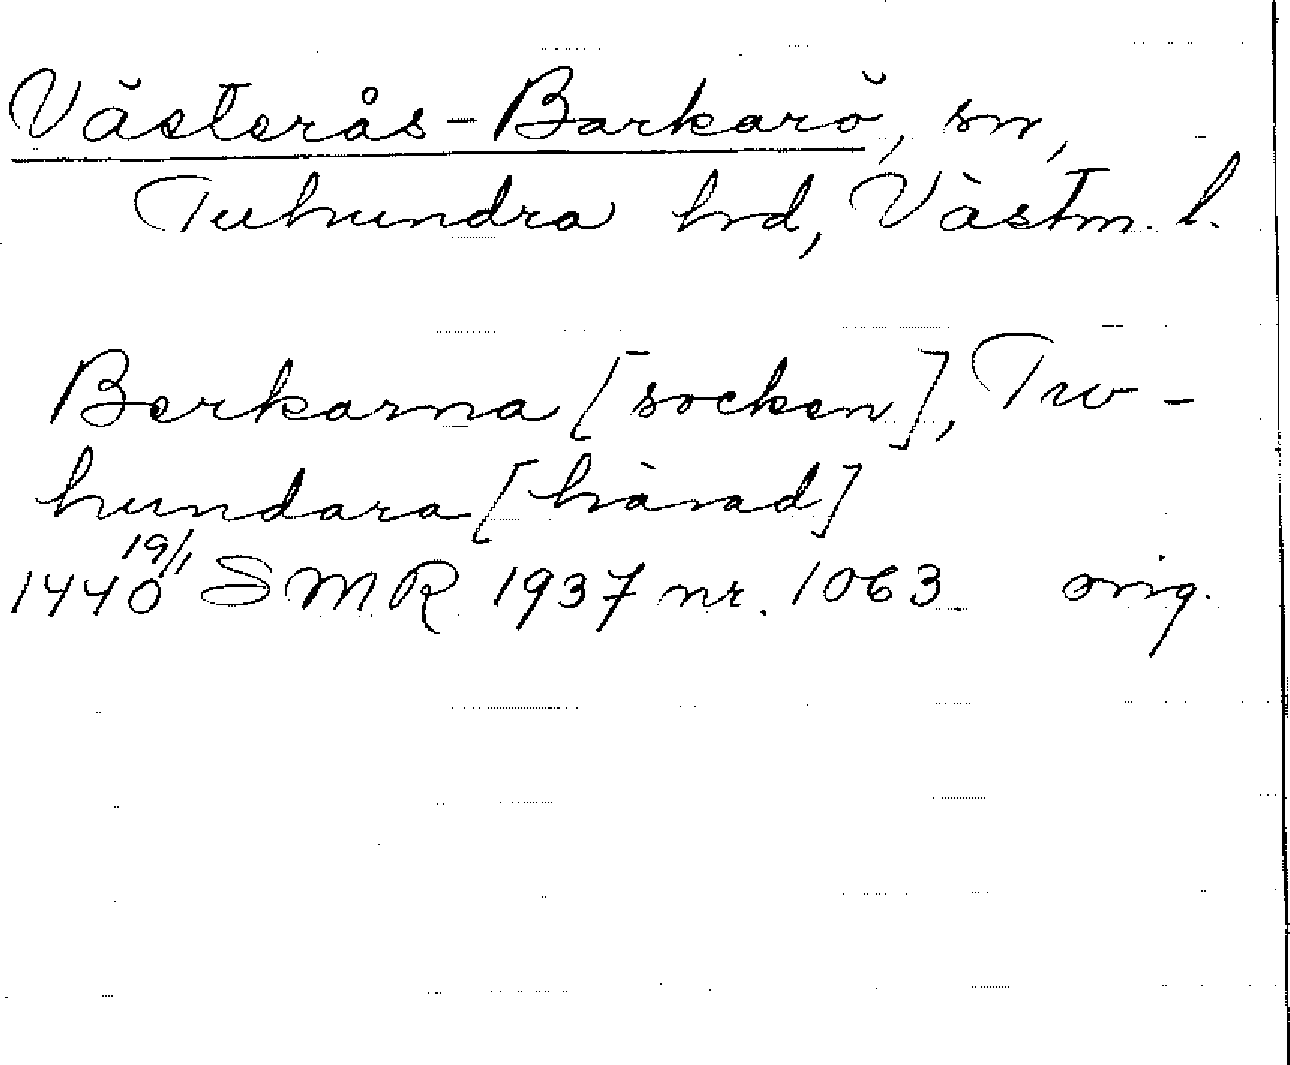 Västerås-Barkarö, sn,
Tuhundra hrd, Västm. l.
Berkarna [socken], Tw-
hundara [härad]
1440 19/1 SMR 1937 nr. 1063 orig.